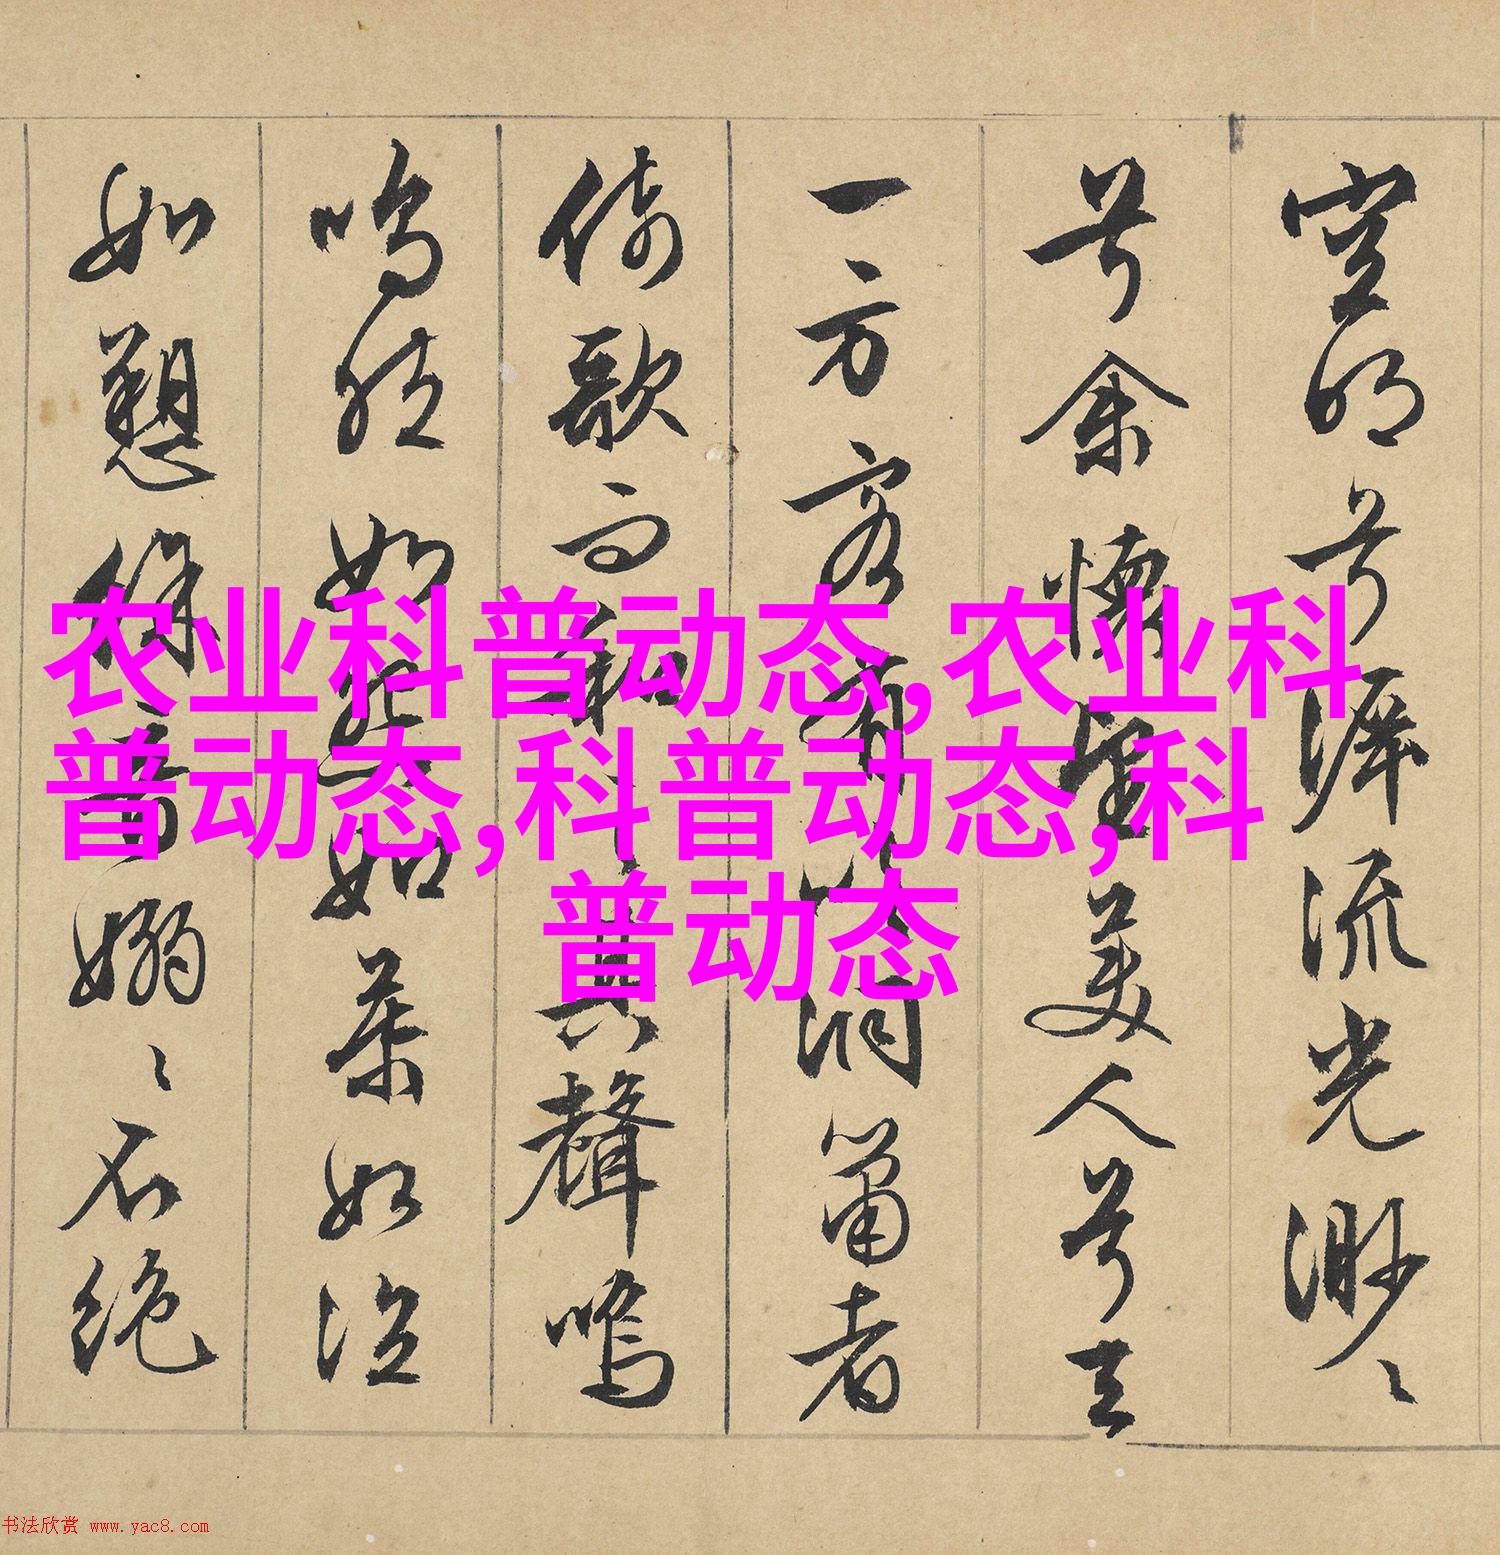 空明兮泝流光渺〻
兮余懷望美人兮天
一方客有吹洞簫者
倚歌而和之其聲嗚
嗚然如怨如慕如泣
如愬餘音嫋〻不絕
农业科普动态,农业科
普动态,科普动态,科
普动态
书法欣赏 www.yac8.com